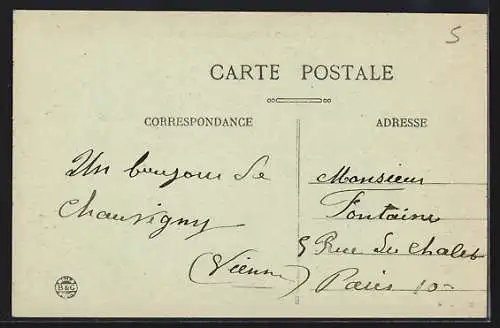 5
CARTE POSTALE
CORRESPONDANCE
ADRESSE
Un bonjour de
Chauvigny
(Vienne)
Monsieur
Fontaine
5 Rue de Chalet
Paris 10
B&G